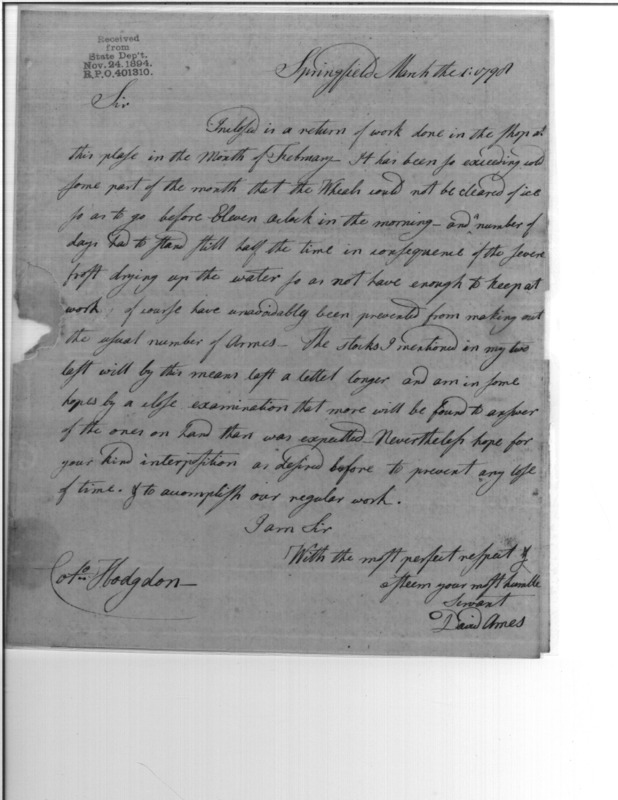 Received
from
State Dep't.
Nov. 24. 1894.
R.P.O. 401310.
Springfield March the 1: 1798
Sir
Inclosed is a return of work done in the Shop at
this plase in the Month of Feebruary It has been so exceeding cold
some part of the month that the Wheals could not be cleared of ice
so as to go before Eleven oclock in the morning - and a number of
days had to stand still half the time in consequence of the severe
frost drying up the water so as not have enough to keep at
work, of course have unavoidably been prevented from making out
the usual number of Armes - The stocks I mentioned in my two
last will by this means last a lettel longer and am in some
hopes by a close examination that more will be found to answer
of the ones on hand than was expected - Nevertheless hope for
your kind interposition as desired before to prevent any lose
of time. & to acomplish our regular work.
I am Sir
With the most perfect respect &
esteem your most humble
Servant
David Ames
Colo. Hodgdon